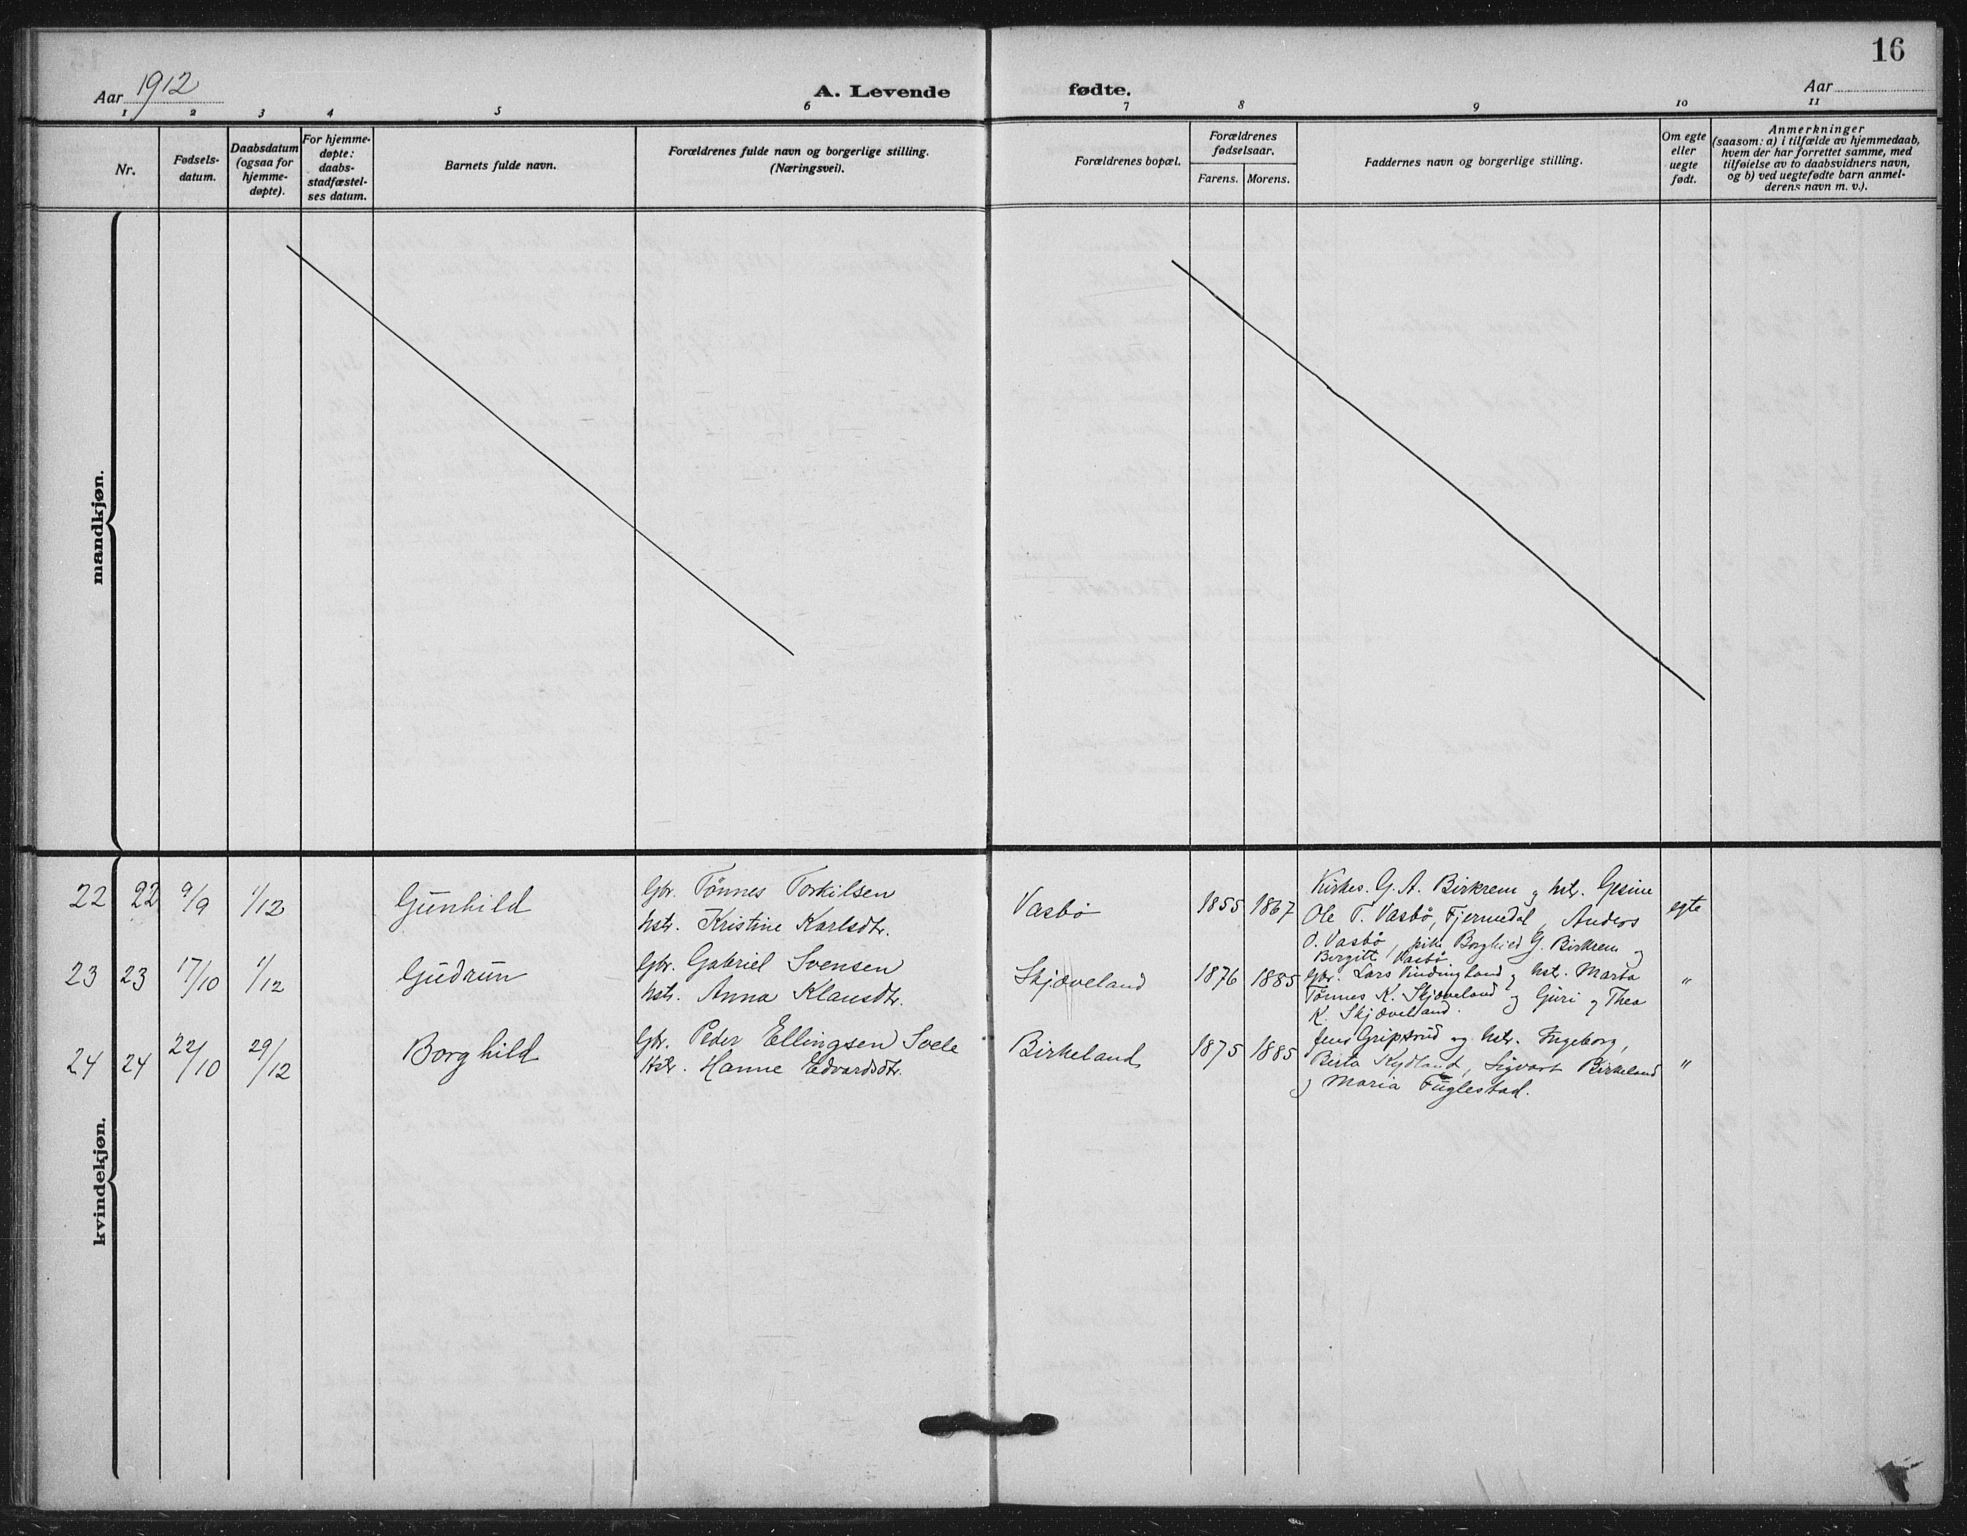 16
Aar 1912
A. Levende fødte.
Aar
1 2 3 4 5 6 7 8 9 10 11
Nr.
Fødsels-
datum.
Daabsdatum
(ogsaa for
hjemme-
døpte).
For hjemme-
døpte:
daabs-
stadfæstel-
ses datum.
Barnets fulde navn.
Forældrenes fulde navn og borgerlige stilling.
(Næringsvei).
Forældrenes bopæl.
Forældrenes
fødselsaar.
Farens. Morens.
Faddernes navn og borgerlige stilling.
Om egte
eller
uegte
født.
Anmerkninger
(saasom: a) i tilfælde av hjemmedaab,
hvem der har forrettet samme, med
tilføielse av to daabsvidners navn,
og b) ved uegtefødte barn anmel-
derens navn m. v.).
mandkjøn.
kvindekjøn.
22 22 9/9 1/12 Gunhild
Gbr. Tønnes Torkilsen
hstr. Kristine Karlsdtr.
Vasbø 1855 1867
Kirkes. G. A. Birkrem og hstr. Gesine
Ole T. Vasbø, Fjermedal, Anders
O. Vasbø, pike Borghild G. Birkrem og
Birgitt Vasbø
egte
23 23 17/10 1/12 Gudrun
Gbr. Gabriel Svensen
hstr. Anna Klausdtr.
Skjæveland 1876 1885
Gbr. Lars Vindingland og hstr. Marta
Tønnes K. Skjæveland og Guri og Thea
K. Skjæveland.
"
24 24 22/10 29/12 Borghild
Gbr. Peder Ellingsen Svele
Hstr. Hanne Edvardsdtr.
Birkeland 1875 1885
Jens Gripsrud og hstr. Ingeborg,
Berta Kydland, Sigvart Birkeland
og Maria Fuglestad.
"